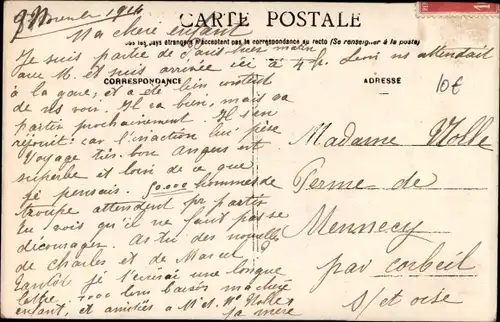 CARTE POSTALE
Ma chère enfant
Tous les pays étrangers n'acceptent pas la correspondance au recto (Se renseigner à la poste)
Je suis partie de matin
avec M. et suis arrivée ici à 4 h. Louis ns attendait
CORRESPONDANCE
ADRESSE
10€
à la gare; et a été bien content
de ns voir. Il va bien, mais va
partir prochainement. Il s'en
réjouit: car l'inaction lui pèse
Voyage très bon Angers est
superbe et loin de ce que
je pensais. 50000 hommes de
troupe attendent pr partir
Tu vois qu'il ne faut pas se
décourager. As-tu des nouvelles
de Charles et de Marcel
tantôt je t'écrirai une longue
lettre. 1000 bons baisers ma chère
enfant, et amitiés à M. et Me Nolle
ta mère
Madame Nolle
Ferme de
Mennecy
par Corbeil
S/et oise